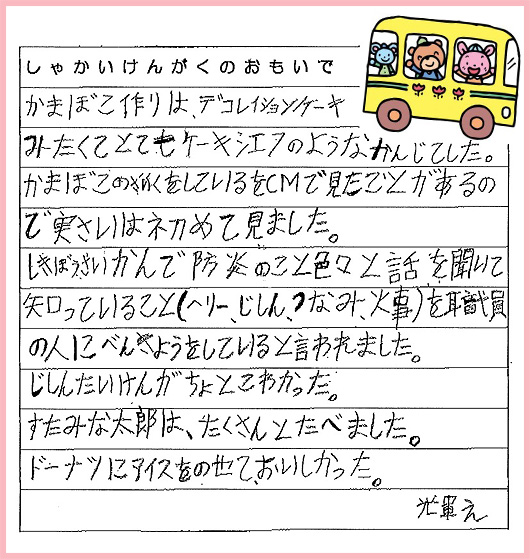 しゃかいけんがくのおもいで
かまぼこ作りは、デコレイションケーキ
みたくてとてもケーキシエフのようなかんじてした。
かまぼこのをしているをCMで見たことがあるの
で実さいは初めて見ました。
しきぼうさいかんで防炎のこと色々と話を聞いて
知っていること(ヘリー、じしん、つなみ、火事)を職員
の人にべんきようをしていると言われました。
じしんたいけんがちょとこわかった。
すたみな太郎は、たくさんとたべました。
ドーナツにアイスをのせて、おいしかった。